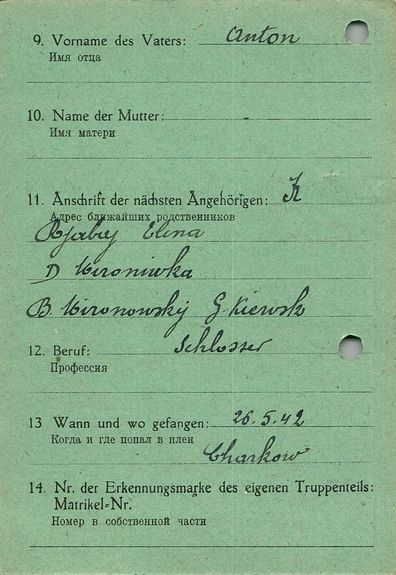 9. Vorname des Vaters: Anton
Имя отца
10. Name der Mutter:
Имя матери
11. Anschrift der nächsten Angehörigen: K
Адрес ближайших родственников
Rjabuj Elena
D Mironiwka
B. Mironowskij G. Kiewsk
12. Beruf: Schlosser
Профессия
13 Wann und wo gefangen: 26.5.42
Когда и где попал в плен
Charkow
14. Nr. der Erkennungsmarke des eigenen Truppenteils:
Matrikel-Nr.
Номер в собственной части